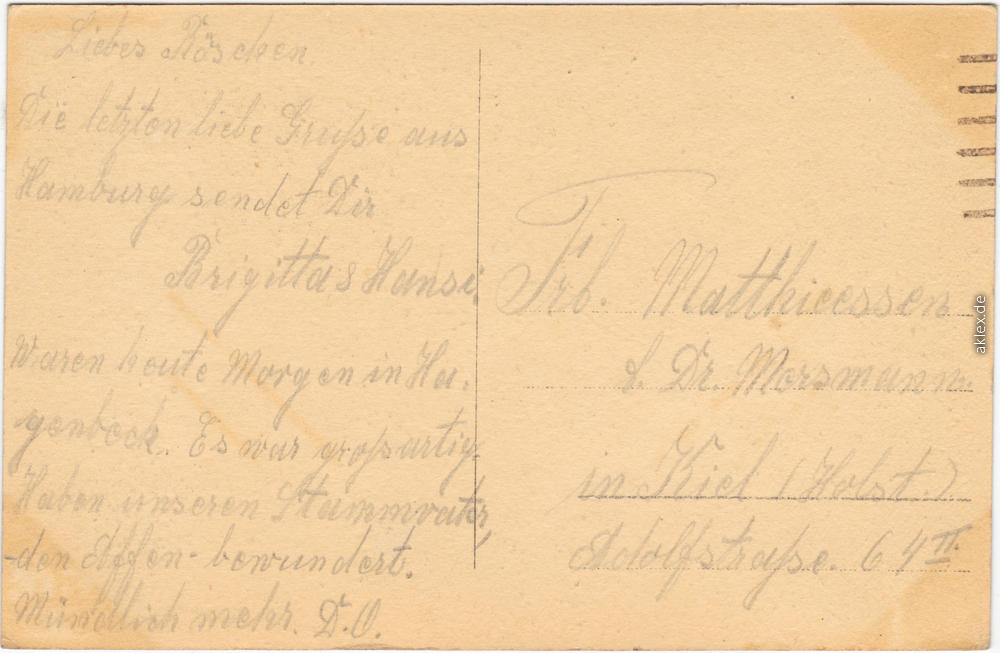 Liebes Röschen.
Die letzten liebe Grüsse aus
Hamburg sendet Dir
Brigitta & Hansi.
Waren heute Morgen in Ha-
genbeck. Es war großartig.
Haben unseren Stammvater,
-den Affen- bewundert.
Mündlich mehr. D.O.
Frl. Matthiessen
b. Dr. Morsmann.
in Kiel (Holst.)
Adolfstraße. 64 II.
aklex.de